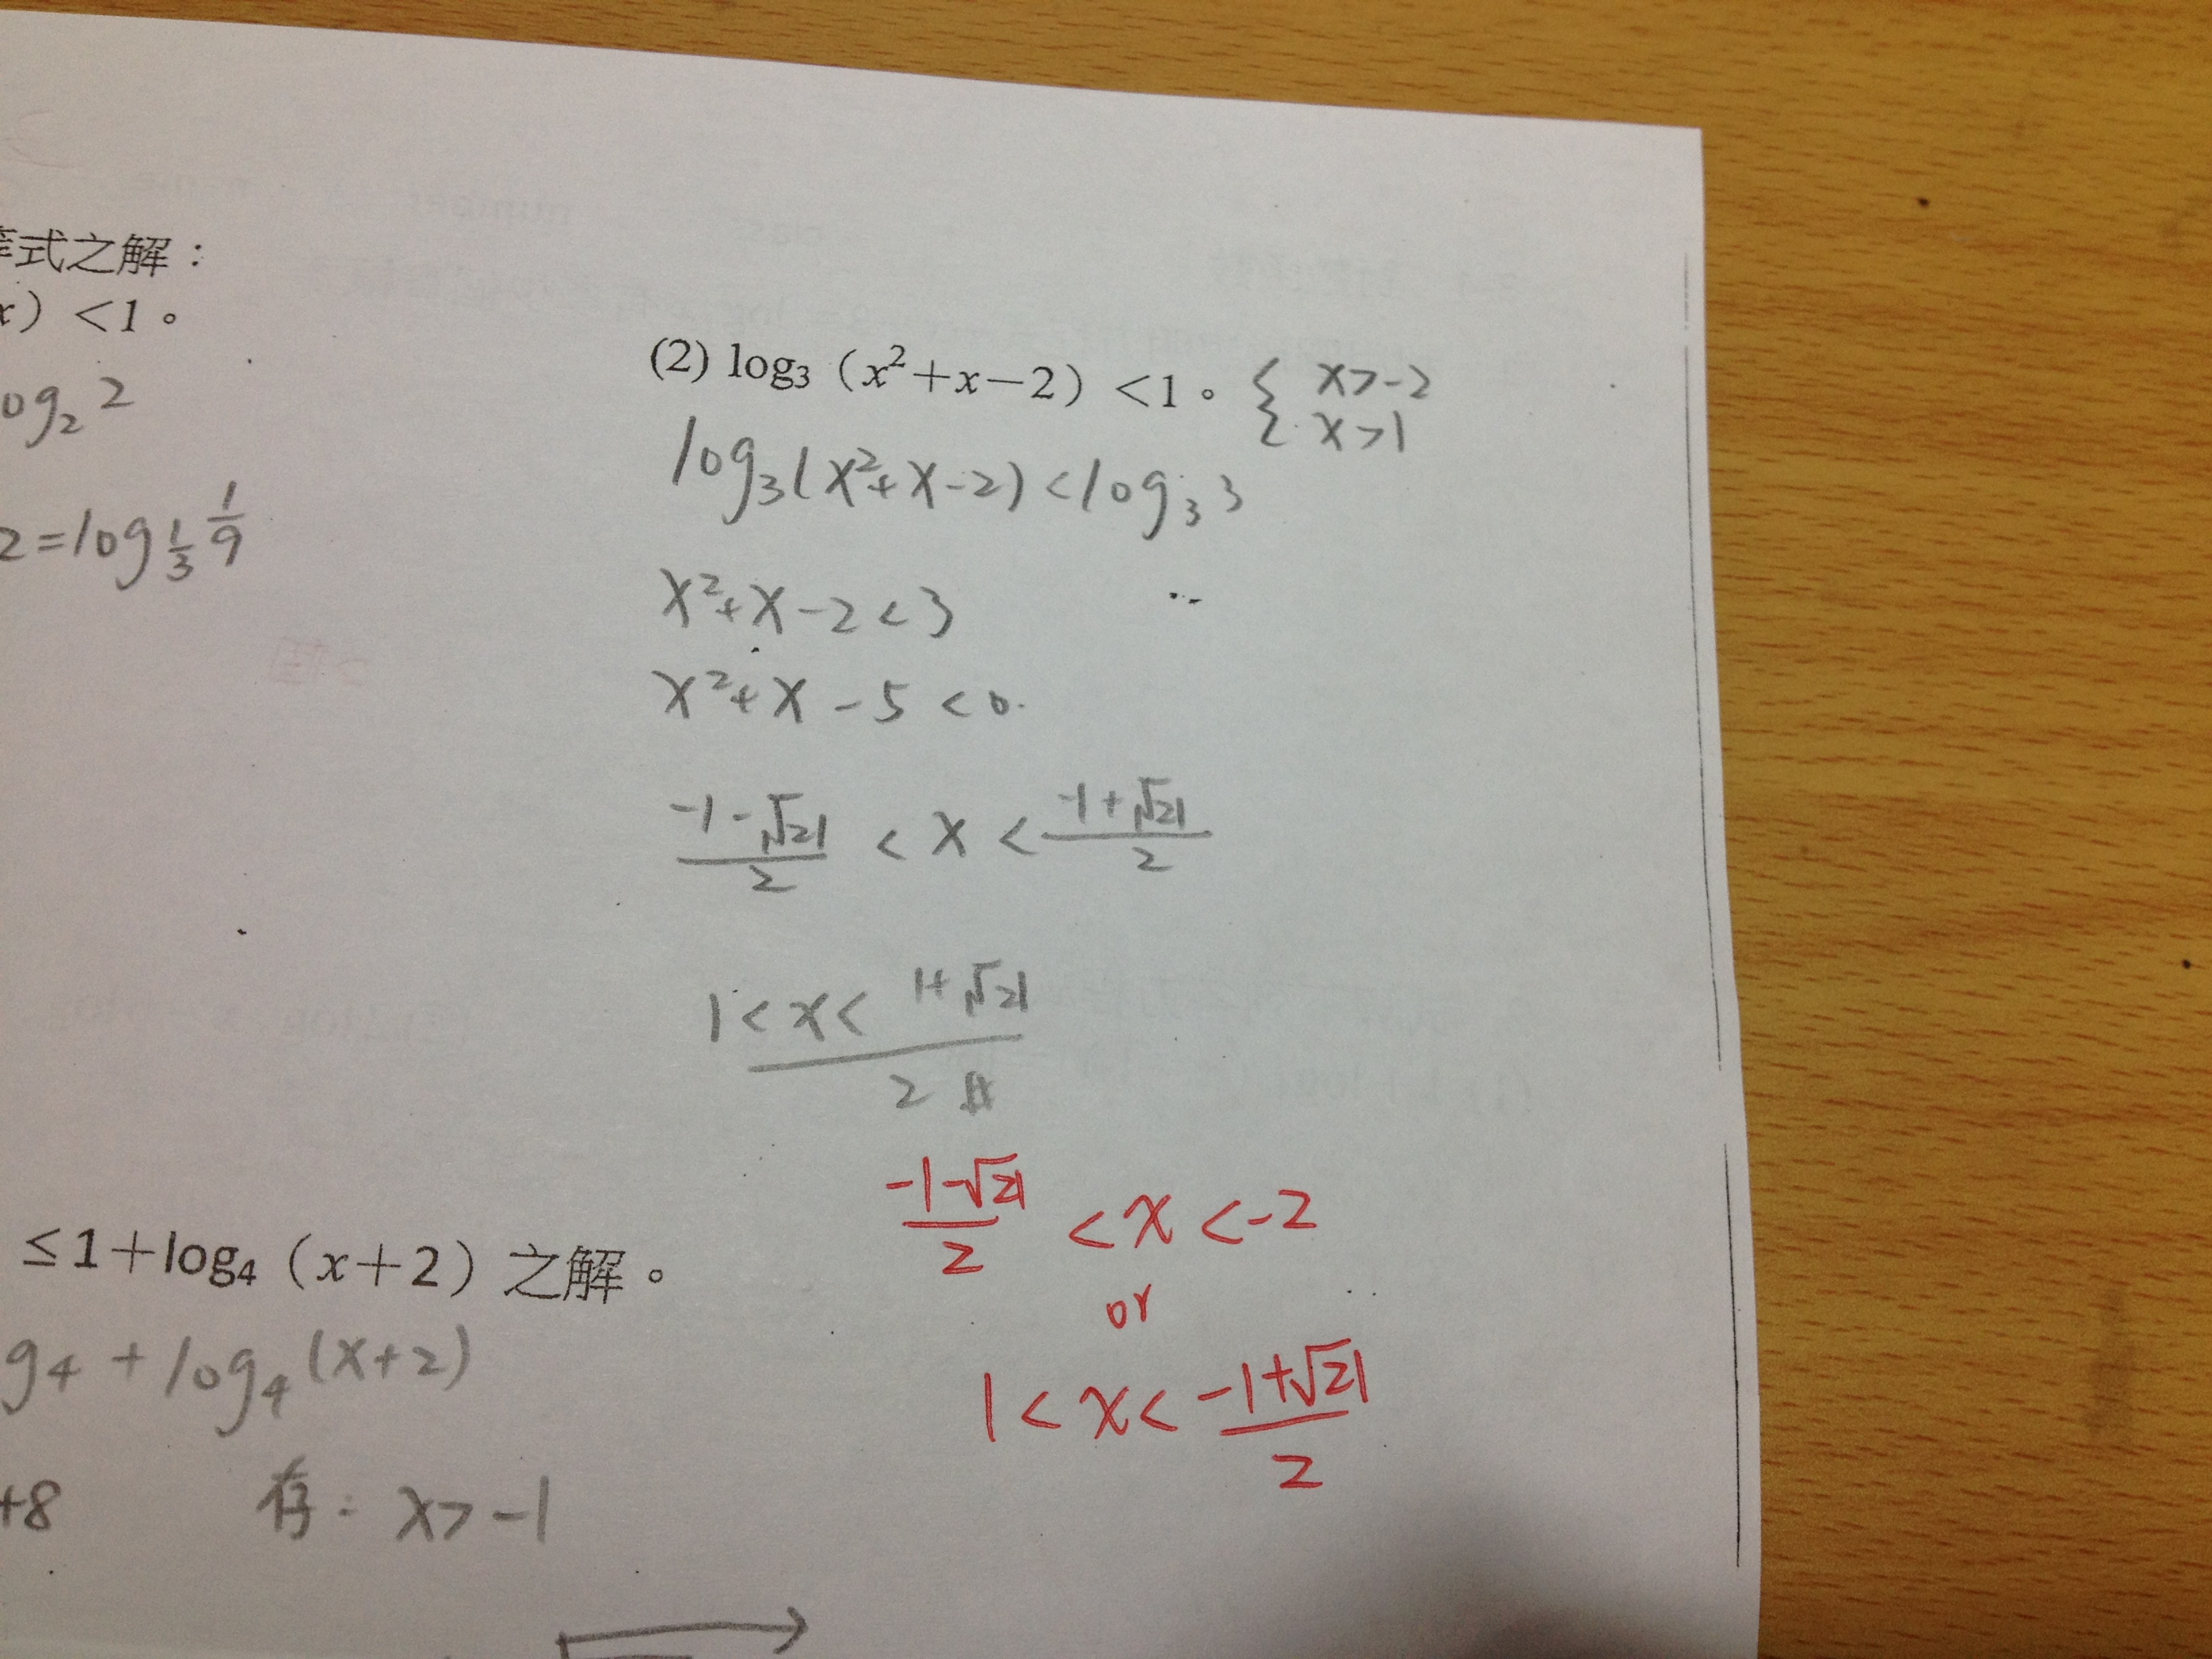 式之解：
x）<1。
og₂ 2
2=log 1/3 1/9
(2) log₃（x²+x−2）<1。 { x>-2
x>1
log₃(x²+x-2)<log₃ 3
x²+x-2<3
x²+x-5<0
(-1-√21)/2 < x < (-1+√21)/2
1<x< (1+√21)/2 #
(-1-√21)/2 <x<-2
or
1<x< (-1+√21)/2
≤1+log₄（x+2）之解。
g4 +log₄(x+2)
+8 存: x>-1